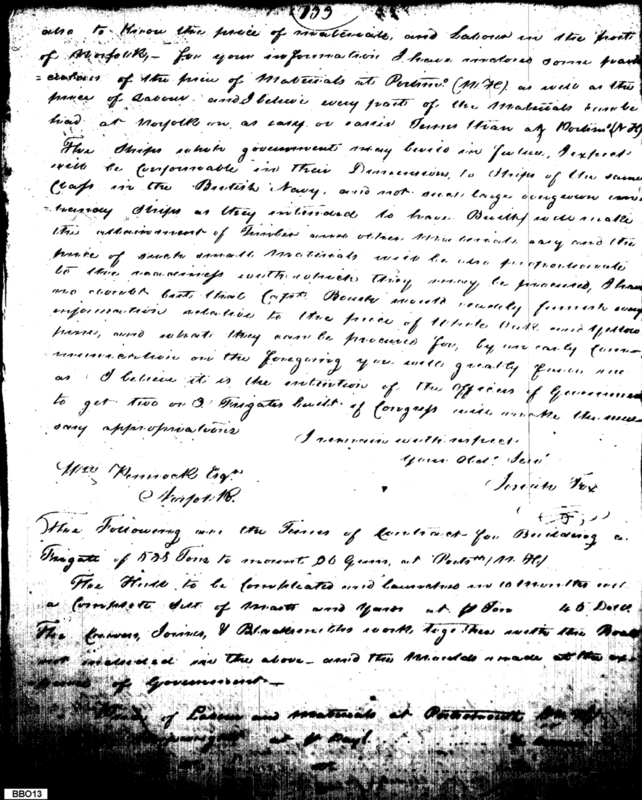 133
also to know the price of materials, and Labour in the port
of Norfolk,- for your information I have inclosed some parti
=culars of the price of Materials at Portsmo (N.H) as well as the
price of Labour and I believe every part of the Materials can be
had at Norfolk on as easy or easier Terms than at Portsmo (N.H)
The Ships which government may build in future, I expect
will be conformable in their Dimensions, to Ships of the same
Class in the British Navy, and not such large overgrown
handy Ships as they intended to have Built, will make
the attainment of Timber and other Materials easy and the
price of such small Materials will be also proportionate
to the readiness with which they may be procured, I have
no doubt but that Capt. Bush would readily furnish every
information relative to the price of White Oak and Yellow
pine, and what they can be procured for, by an early Comm
munication on the foregoing you will greatly favor me
as I believe it is the intention of the Officers of Governmen
to get two or 3 Frigates built if Congress will make the neces
sary appropriations
I remain with respect
Your Obdt. Servt
Josiah Fox
Wm Pennock Esqr.
Norfolk.
The Following are the Terms of Contract for Building a
Frigate of 535 Tons to mount 20 Guns, at Portsmo (N.H)
The Hull to be Compleated and Launched in 10 Months
a Complete Sett of Masts and Yards at Ton 40 Dolls
The Carvers, Joiners, & Blacksmiths work, together with the Boats
not included in the above - and the Moulds made at the ex
pence of Government -
of Labour and Materials at Portsmouth
BBO13